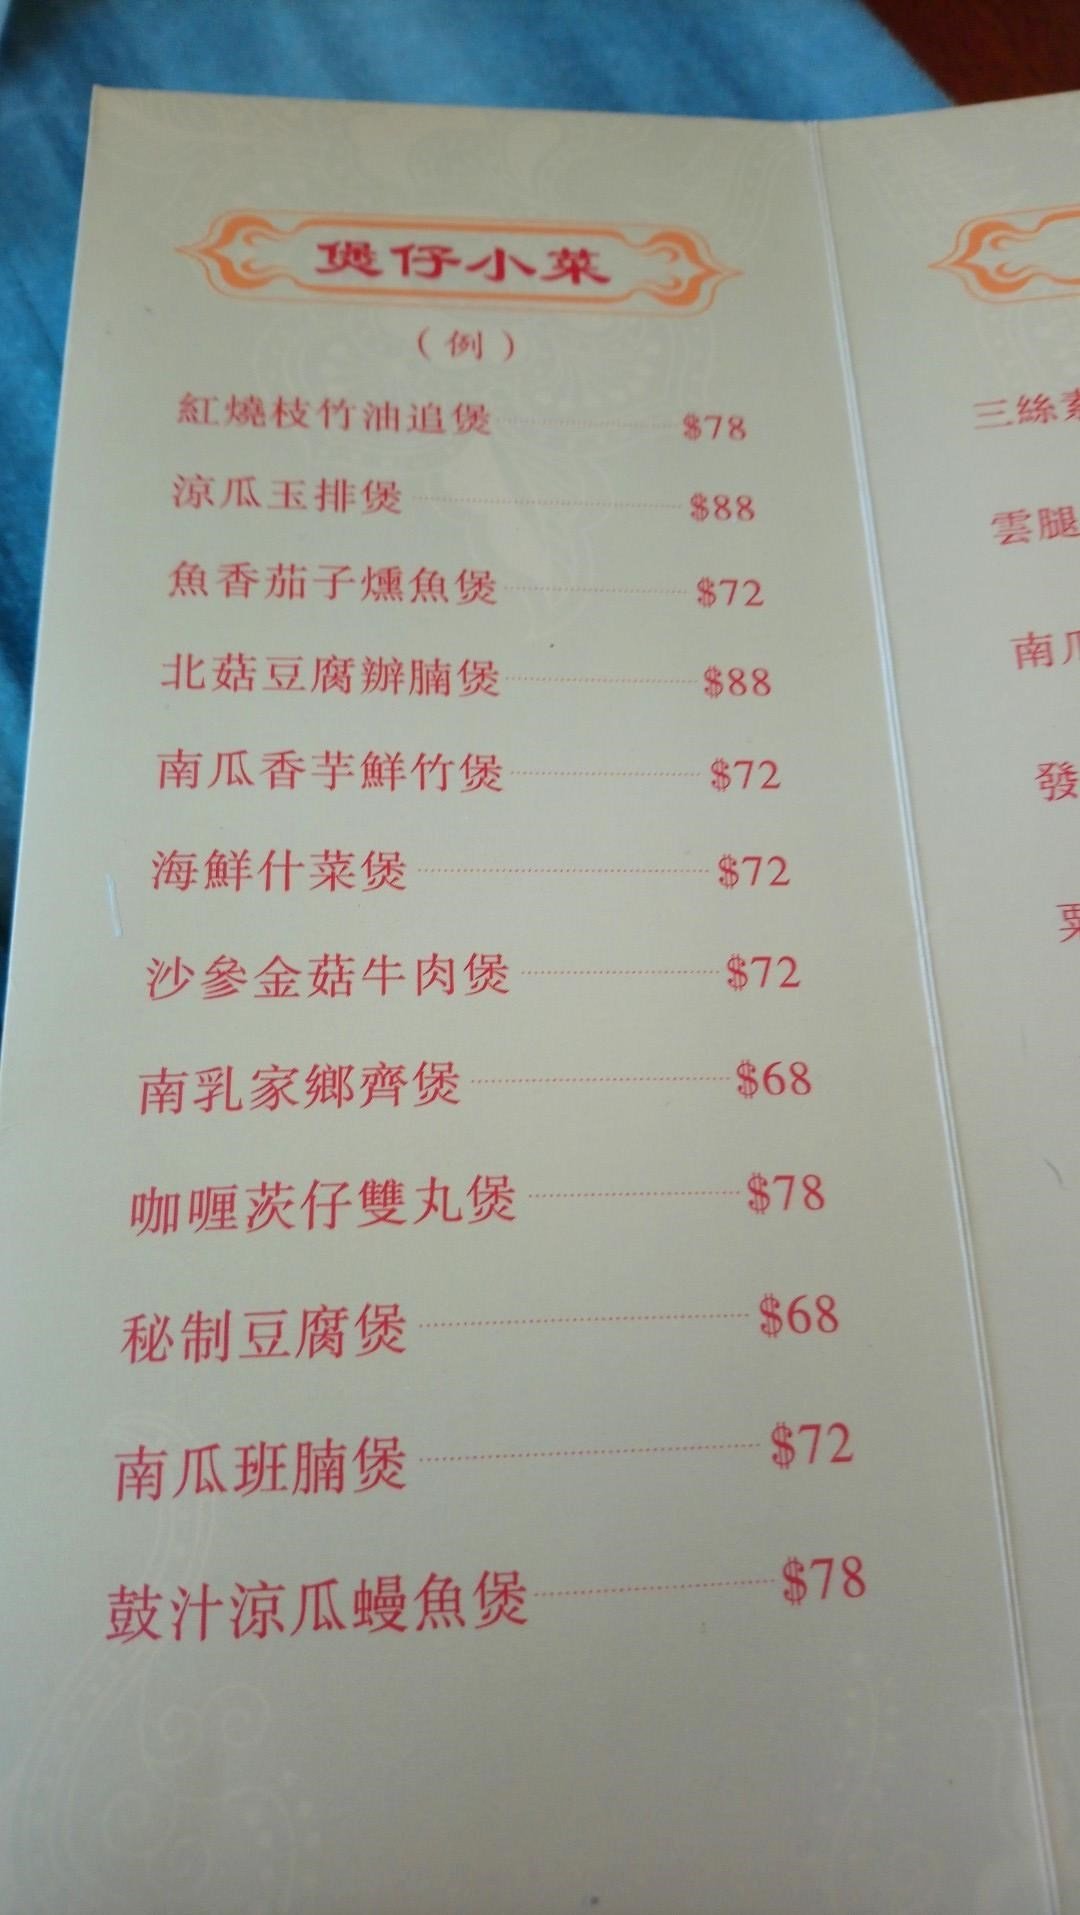 煲仔小菜
（例）
紅燒枝竹油追煲 $78
涼瓜玉排煲 $88
魚香茄子燻魚煲 $72
北菇豆腐辦腩煲 $88
南瓜香芋鮮竹煲 $72
海鮮什菜煲 $72
沙參金菇牛肉煲 $72
南乳家鄉齊煲 $68
咖喱茨仔雙丸煲 $78
秘制豆腐煲 $68
南瓜班腩煲 $72
鼓汁涼瓜鰻魚煲 $78
三絲
雲腿
南瓜
發